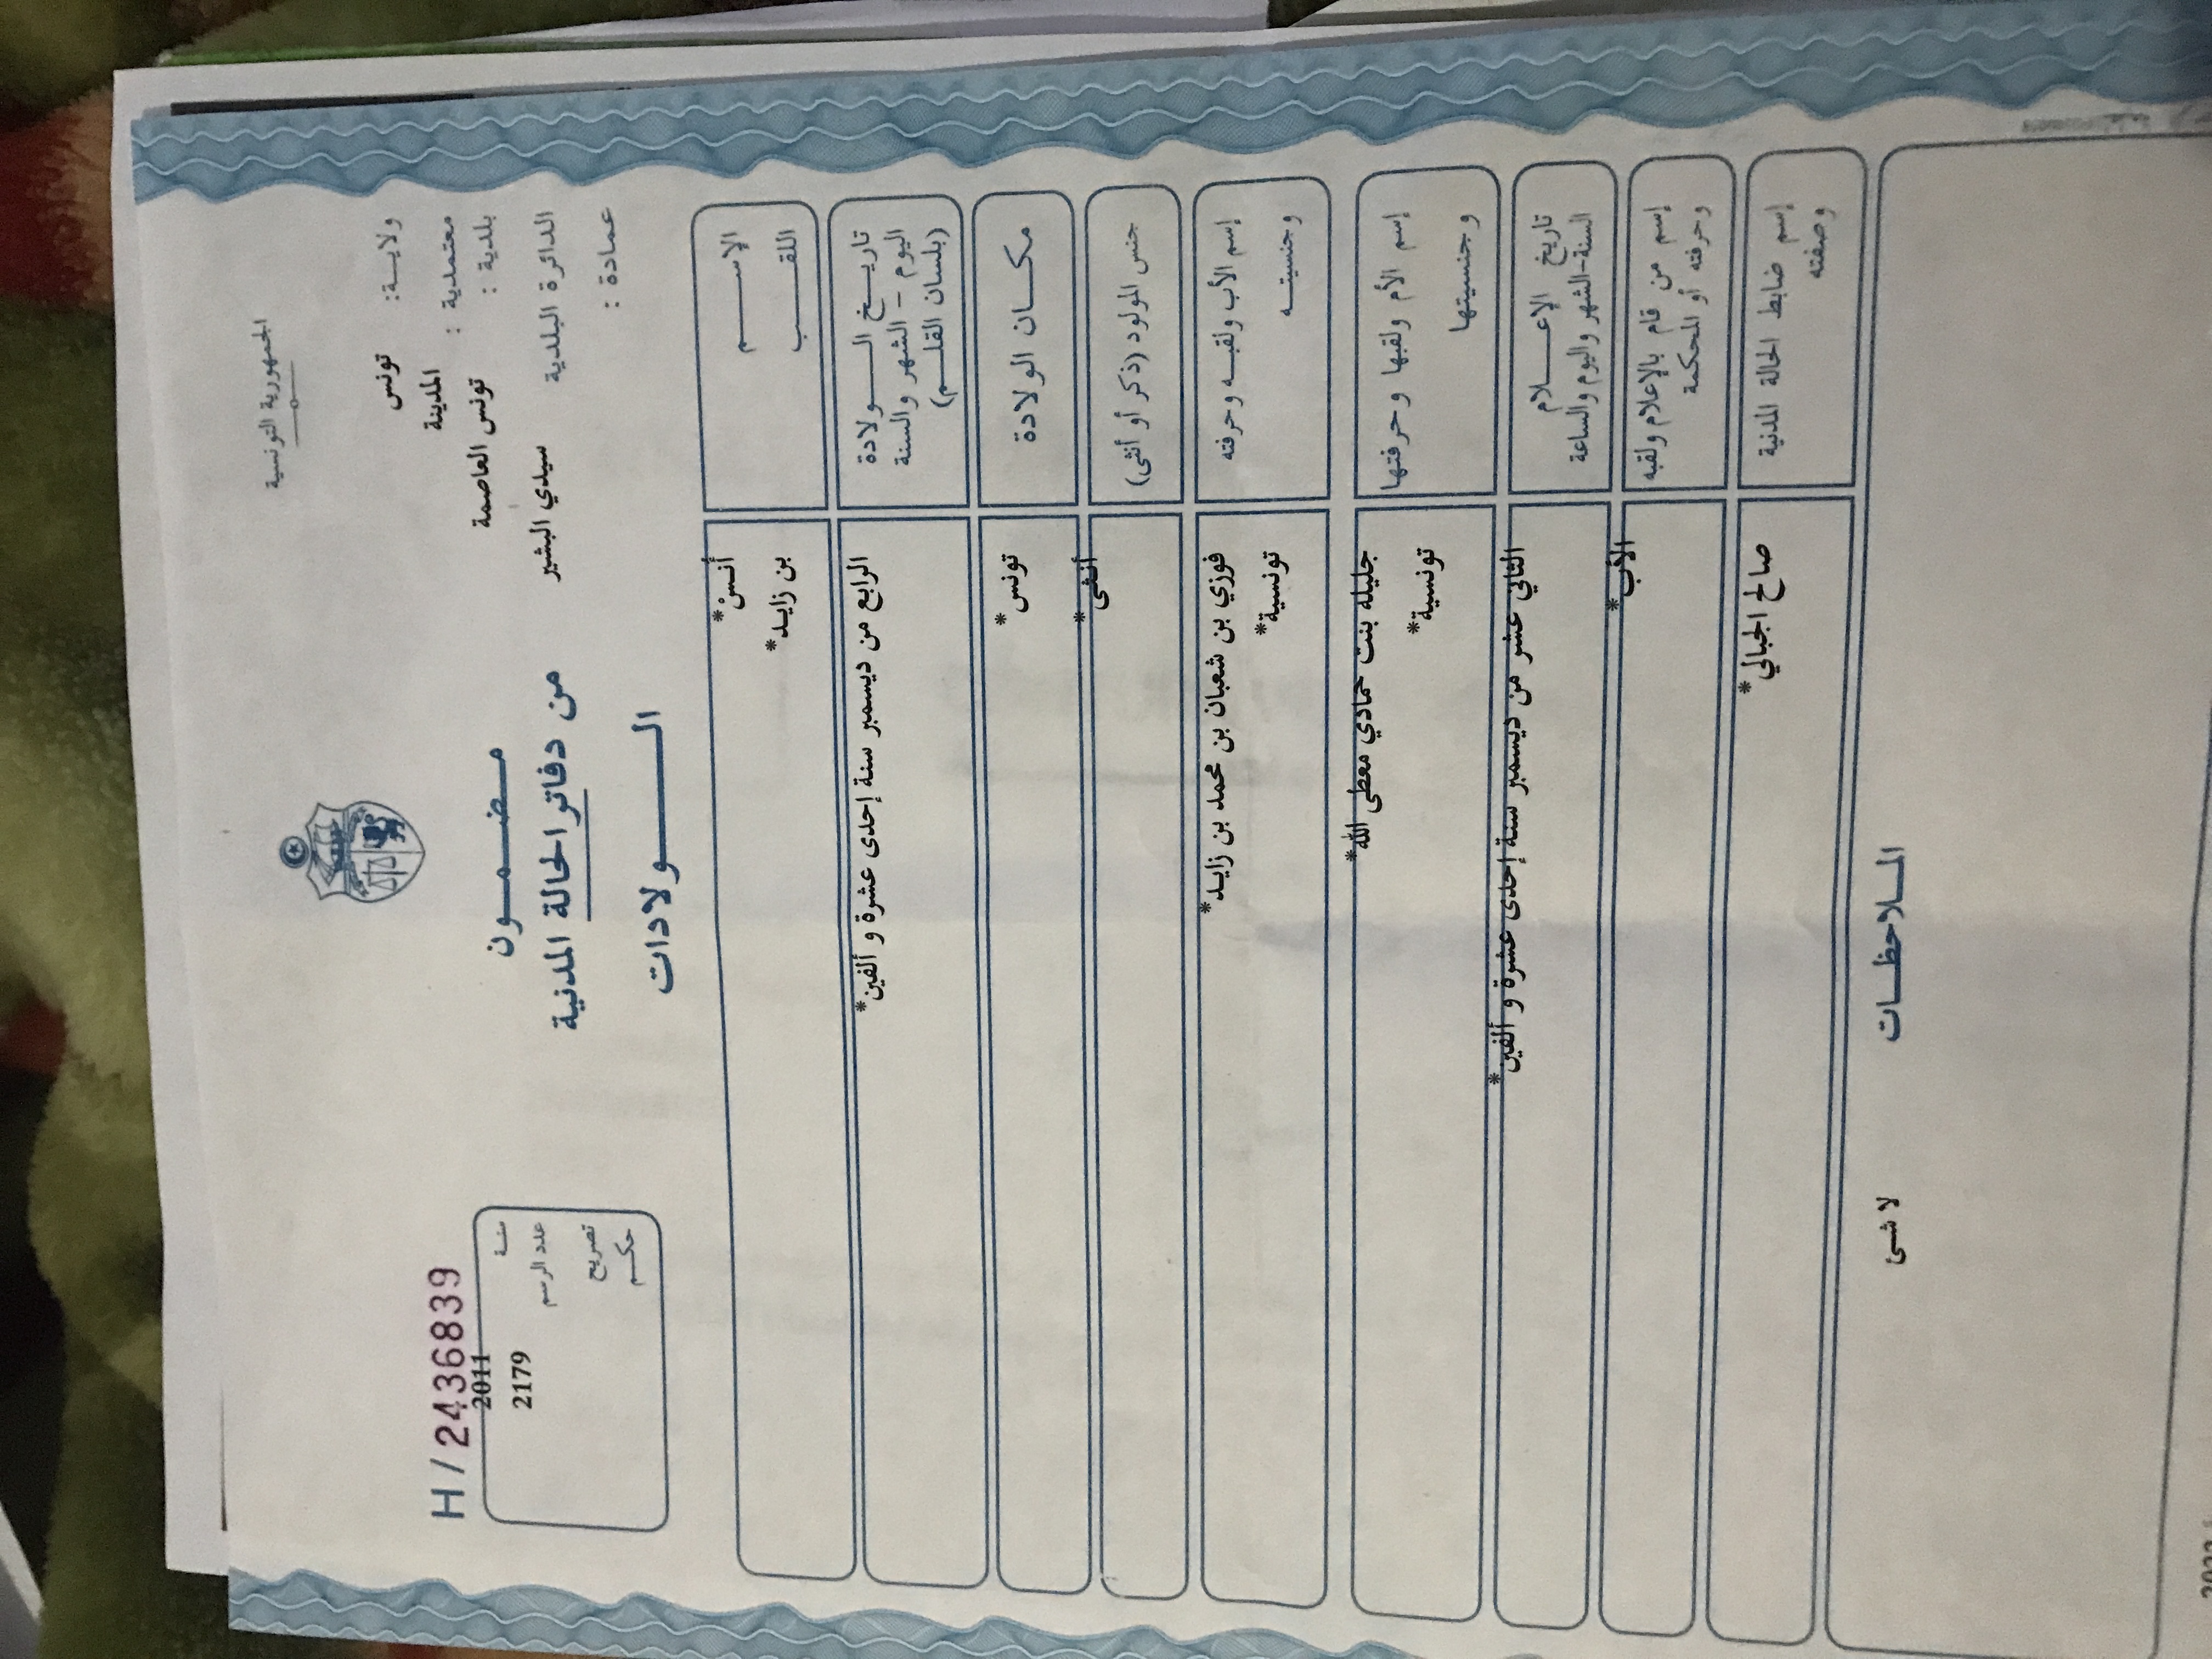 الجمهورية التونسية
ولايـــة: تونس
معتمدية : المدينة
بلدية : تونس العاصمة
الدائرة البلدية سيدي البشير
عمادة :
H / 24368839
سنـة 2011
عدد الرسم 2179
تصريح
حكـم
مـضـمـون
من دفاتر الحالة المدنية
الـولادات
الإسـم أنسْ*
اللقـب بن زايد*
تاريـخ الـولادة الرابع من ديسمبر سنة إحدى عشرة و ألفين*
اليوم - الشهر والسنة
(بلسان القلـم)
مكـان الولادة تونس*
جنس المولود (ذكر أو أنثى) أنثى*
إسم الأب ولقبـه وحرفته فوزي بن شعبان بن محمد بن زايد*
وجنسيتـه تونسية*
إسم الأم ولقبها وحرفتها جليلة بنت حمادي معطى الله*
وجنسيتها تونسية*
تاريخ الإعـلام الثاني عشر من ديسمبر سنة إحدى عشرة و ألفين*
السنة-الشهر واليوم والساعة
إسم من قام بالإعلام ولقبه الأب*
وحرفته أو المحكمة
إسم ضابط الحالة المدنية صالح الجبالي*
وصفته
المـلاحظـات
لا شئ